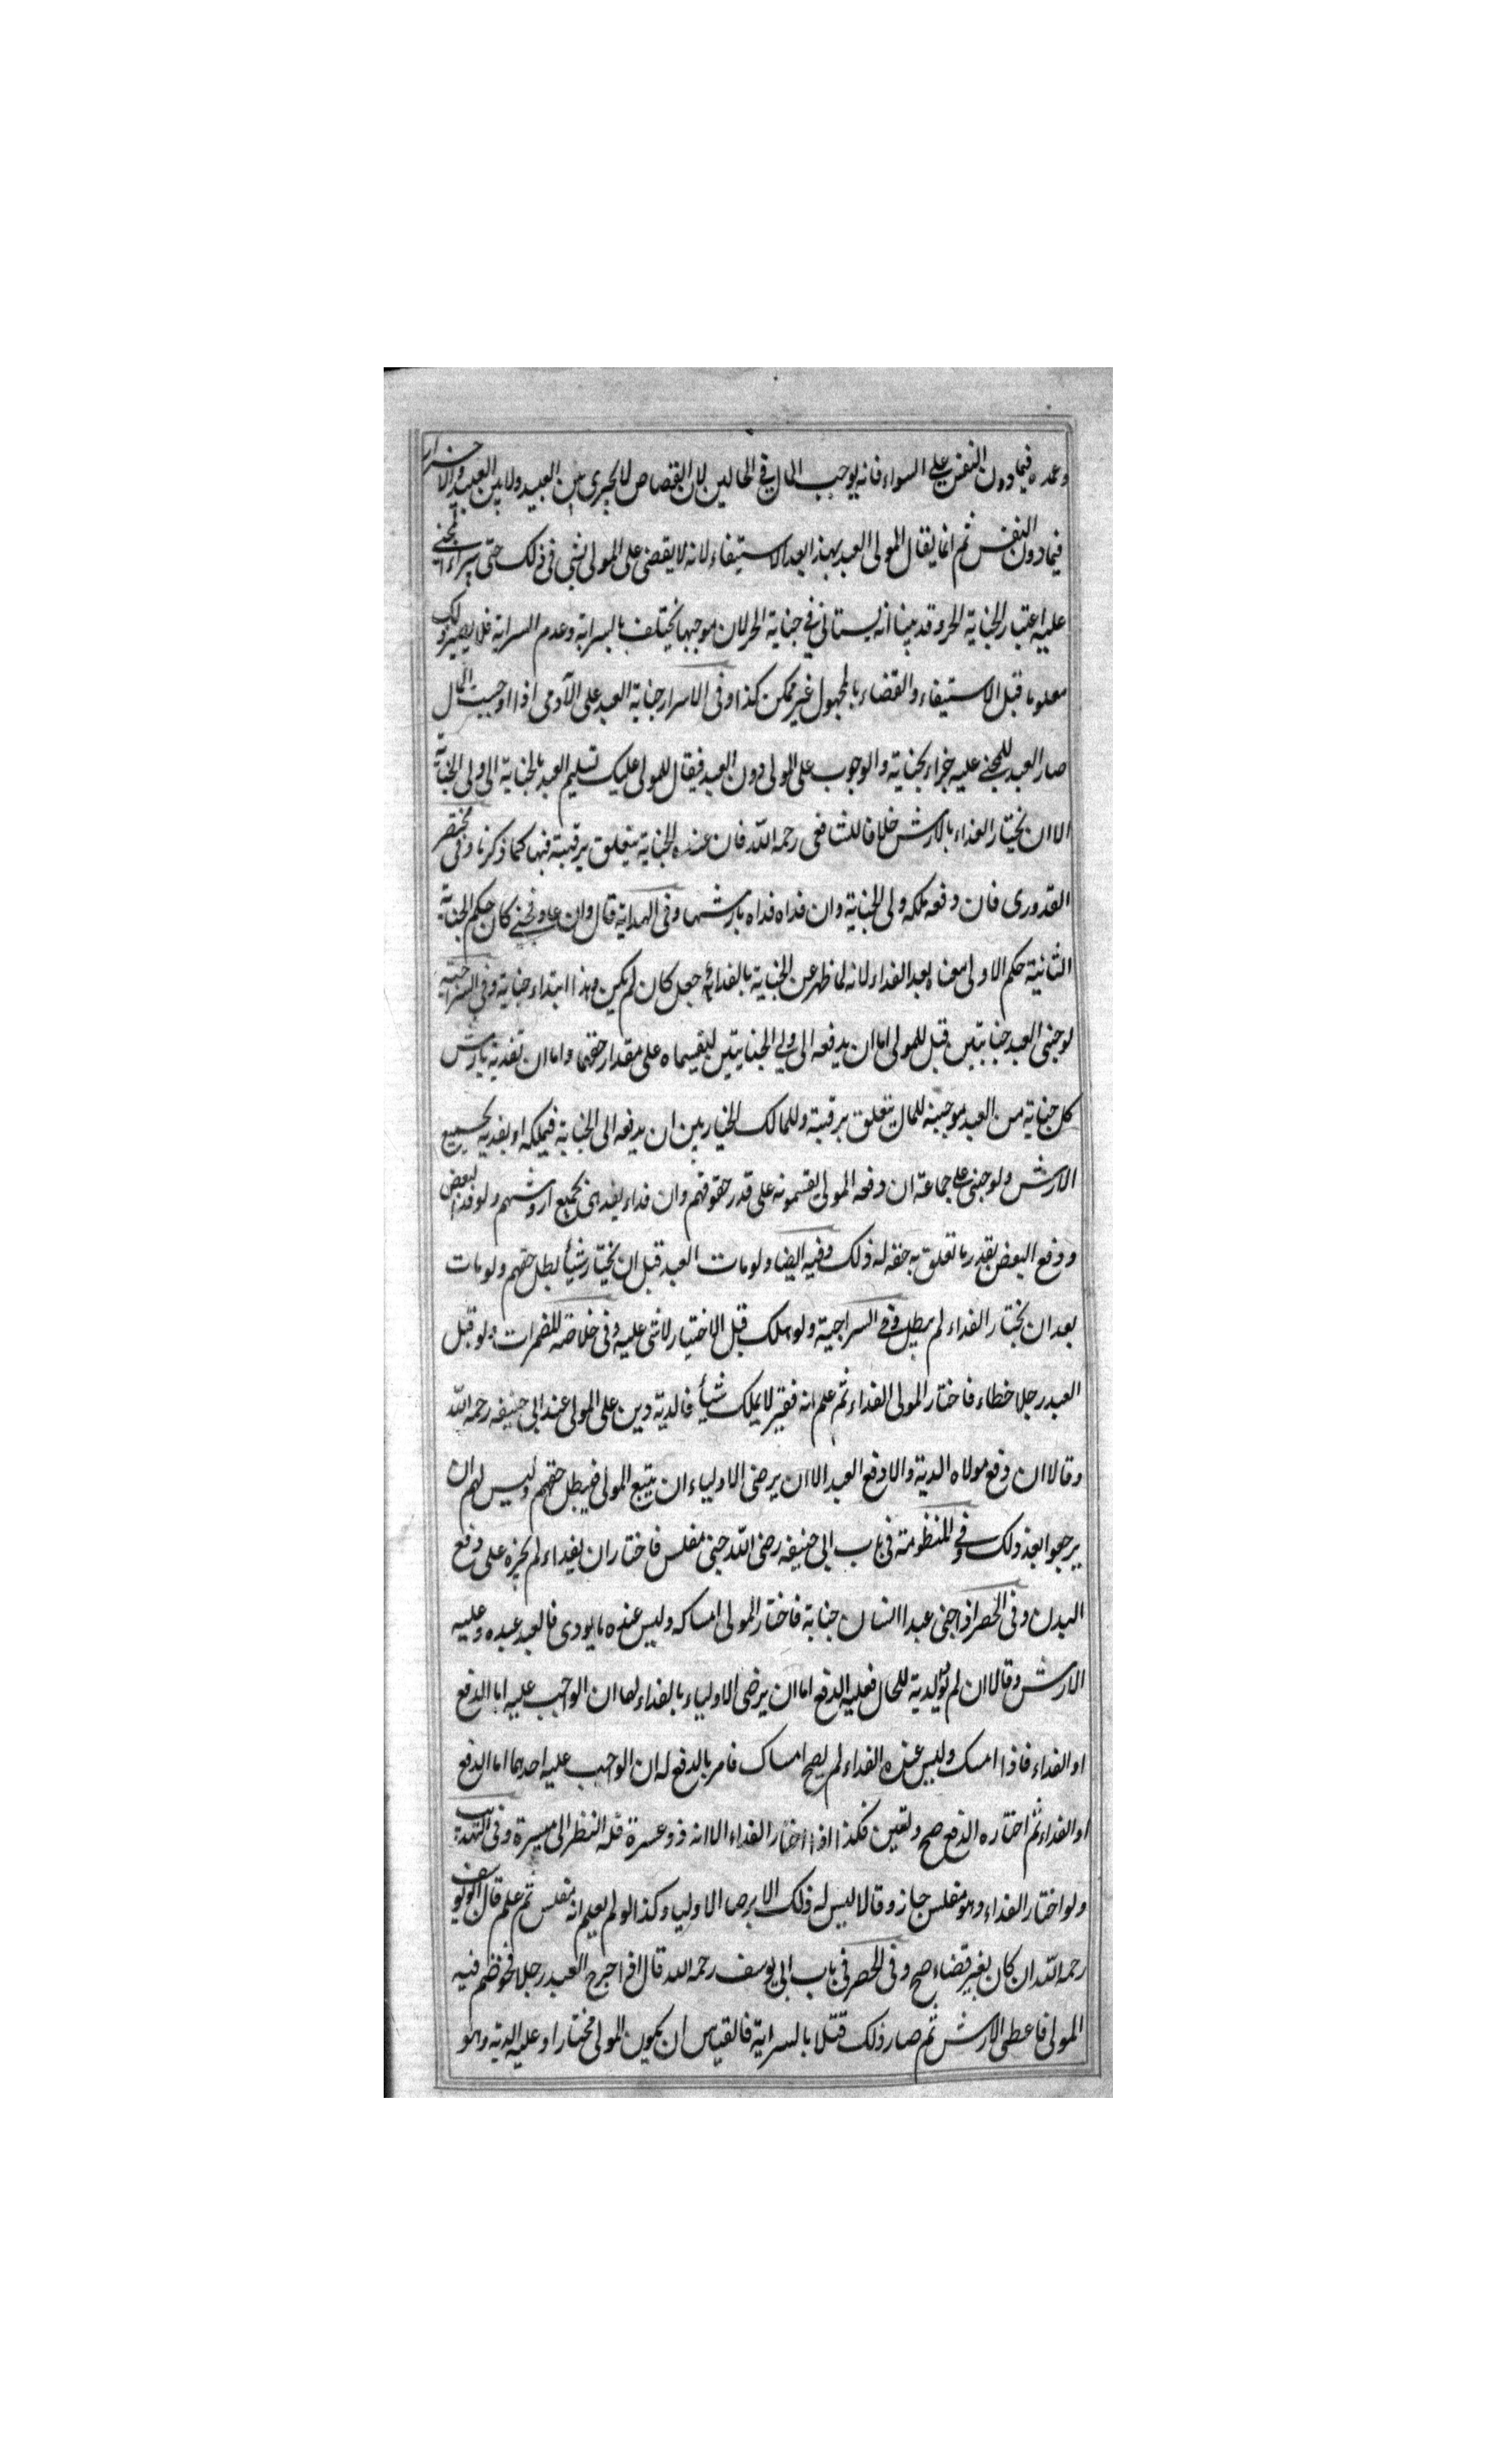 وعمده فيما دون النفس على السواء فانه يوجب المال في الحالين لان القصاص لا يجرى بين العبيد ولا بين العبيد والاحرار
فيما دون النفس ثم انما يقال المولى العبد بهذا بعد الاستيفاء لانه لا يقضى على المولى بشى فى ذلك حتى يبراء المجنى
عليه اعتبار الجناية الحر وقد بينا انه يستانى في جناية الحر لان موجبها يختلف بالسراية وعدم السراية فلا يصير ذلك
معلوما قبل الاستيفاء والقضاء بالمجهول غير ممكن كذا وفى الاسرار جناية العبد على الآدمى اذا اوجبت المال
صار العبد للمجنى عليه جزاء بجناية والوجوب على المولى دون العبد فيقال للمولى عليك تسليم العبد بالجناية الى ولى الجناية
الا ان يختار الفداء بالارش خلافا للشافعى رحمه الله فان عنده الجناية يتعلق برقبته فيها كما ذكرنا وفى مختصر
القدورى فان دفعه ملكه ولى الجناية وان فداه فداه بارشها وفى الهداية قال وان عاد فجنى كان حكم الجناية
الثانية حكم الاولى معناه بعد الفداء لانه لما ظهر عن الجناية بالفداء جعل كان لم يكن وهذا ابتداء جناية وفى السراجية
لو جنى العبد جنايتين قبل للمولى اما ان يدفعه الى ولى الجنايتين ليقسماه على مقدار حقهما واما ان تفديه بارش
كل جناية من العبد موجبة للمال يتعلق برقبته وللمالك الخيار بين ان يدفعه الى الجناية فيملكه او يفديه بجميع
الارش ولو جنى على جماعة ان دفعه المولى يقسمونه على قدر حقوقهم وان فداء يفدى بجميع اروشهم ولو فدا لبعض
ودفع البعض بقدر ما تعلق به حقه له ذلك وفيه ايضا ولو مات العبد قبل ان يختار شيأ لبطل حقهم ولو مات
بعد ان يختار الفداء لم يبطل وفى السراجية ولو هلك قبل الاختيار لا شى عليه وفى خلاصة المضمرات ولو قتل
العبد رجلا خطاء فاختار المولى الفداء ثم علم انه فقير لا يملك شيأ فالدية دين على المولى عند ابى حنيفه رحمه الله
وقالا ان دفع مولاه الدية والا دفع العبد الا ان يرضى الاولياء ان يتبع المولى فيبطل حقهم وليس لهم ان
يرجعوا بعد ذلك وفى المنظومة فى باب ابى حنيفه رضى الله جنى مفلس فاختار ان يفداء لم يجزه على دفع
البدن وفى الحصر اذا جنى عبد انسان جناية فاختار المولى امساكه وليس عنده ما يودى فالعبد عبده وعليه
الارش وقالا ان لم يؤ الدية للحال فعليه الدفع اما ان يرضى الاولياء بالفداء لهما ان الواجب عليه اما الدفع
او الفداء فاذا امسك وليس عنده الفداء لم يصح امساك فامر بالدفع له ان الواجب عليه احدهما اما الدفع
او الفداء ثم اختاره الدفع صح وتعين فكذا اذا اختار الفداء الا انه ذو عسرة فله النظر الى ميسرة وفى التهذيب
ولو اختار الفداء وهو مفلس جاز وقالا ليس له ذلك الا برضا الاوليا وكذا لو لم يعلم انه مفلس ثم علم قال ابو يوسف
رحمه الله ان كان بغير قضاء صح وفى الحصر فى باب ابى يوسف رحمه الله قال اذا جرح العبد رجلا فخوصم فيه
المولى فاعطى الارش ثم صار ذلك قتلا بالسراية فالقياس ان يكون المولى مختارا وعليه الدية وهو